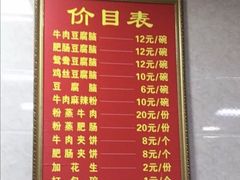 价目表
牛肉豆腐脑 12元/碗
肥肠豆腐脑 12元/碗
鸳鸯豆腐脑 12元/碗
鸡丝豆腐脑 10元/碗
豆腐脑 6元/碗
牛肉麻辣粉 10元/碗
粉蒸牛肉 20元/份
粉蒸肥肠 20元/份
牛肉夹饼 8元/个
肥肠夹饼 8元/个
加花生 2元/份